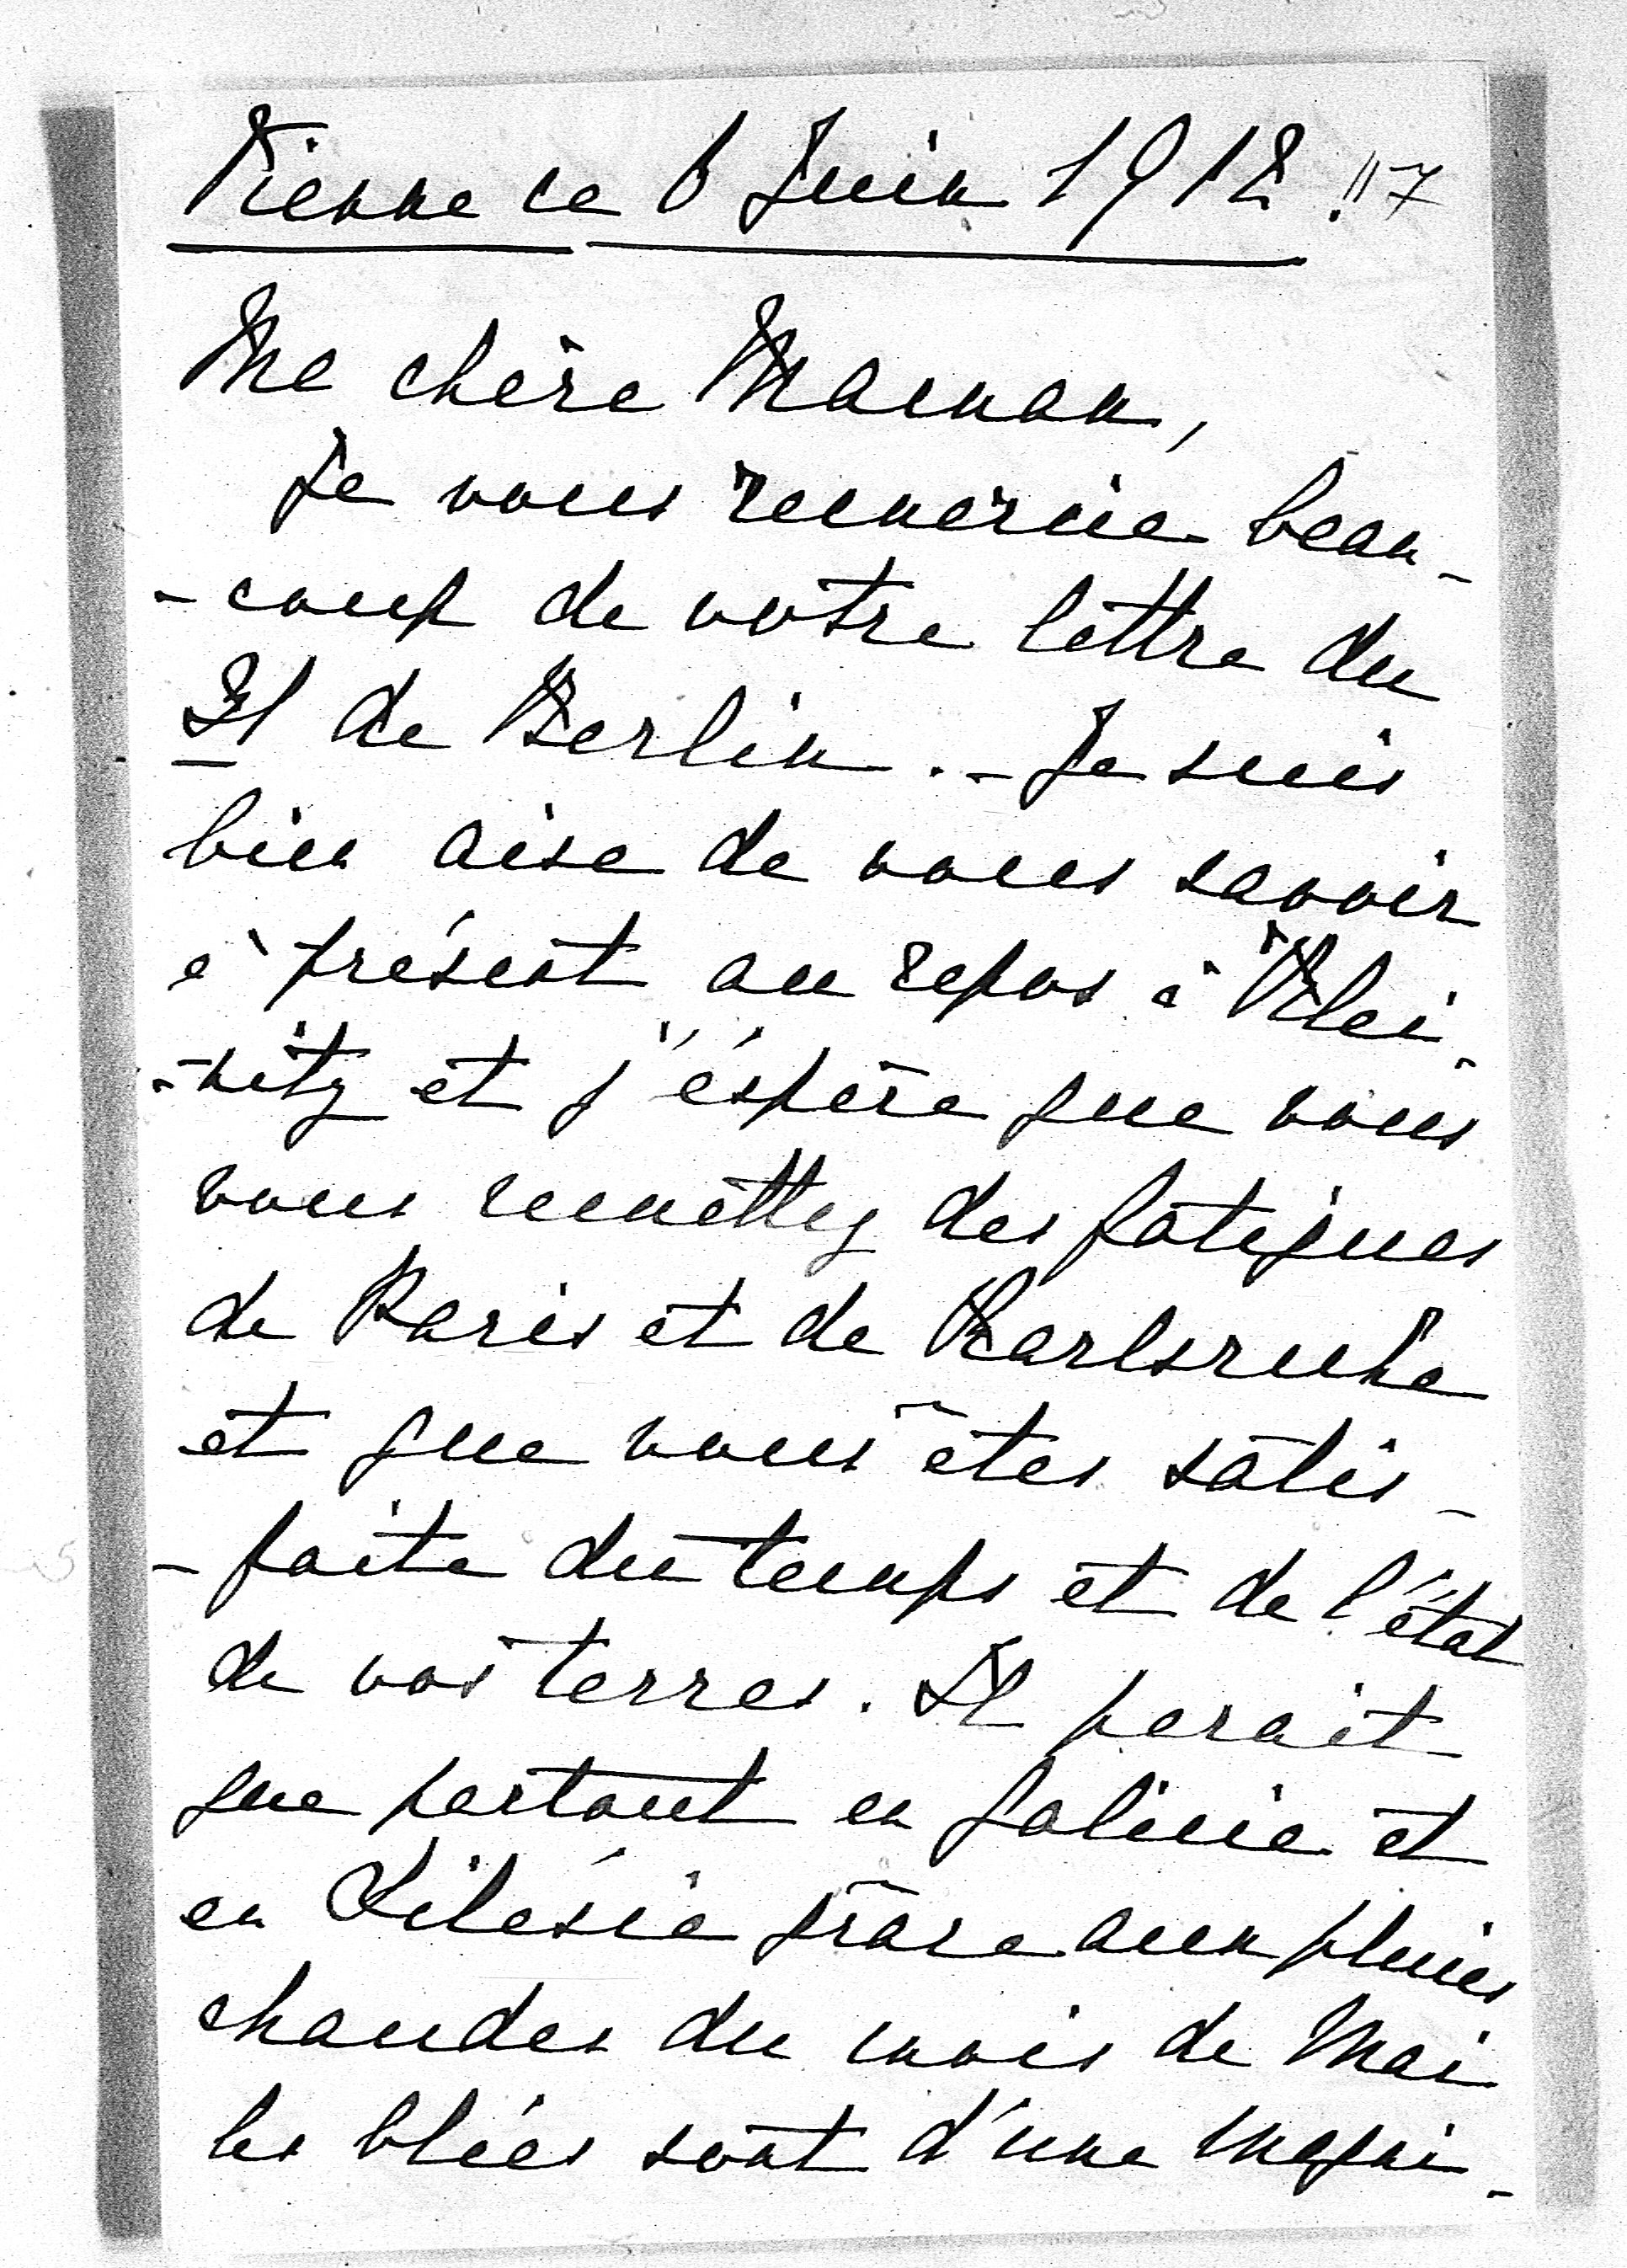 Vienne ce 6 Juin 1912. !!7
Ma chère Maman,
Je vous remercie beau-
-coup de votre lettre du
31 de Berlin. - Je suis
bien aise de vous savoir
à présent au repos à Klei-
-nitz et j'éspère que vous
vous remettez des fatigues
de Paris et de Karlsruhe
et que vous êtes satis-
-faite du temps et de l'état
de vos terres. Il parait
que partout en Galicie et
en Silésie grâce aux pluies
chaudes du mois de Mai
les blées sont d'une magni-